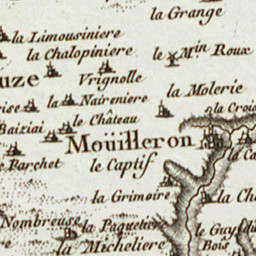 la Grange
la Limousiniere
la Chalopiniere
le Min Roux
uze
Vrignolle
la Molerie
la Nairemiere
la Croix
le Château
Baiziai
Moüilleron
le Parchet
le Captif
la Ca
la Grimoire
la Cha
Nombreuse
la Paquetiere
le Guy du
la Micheliere
Bois